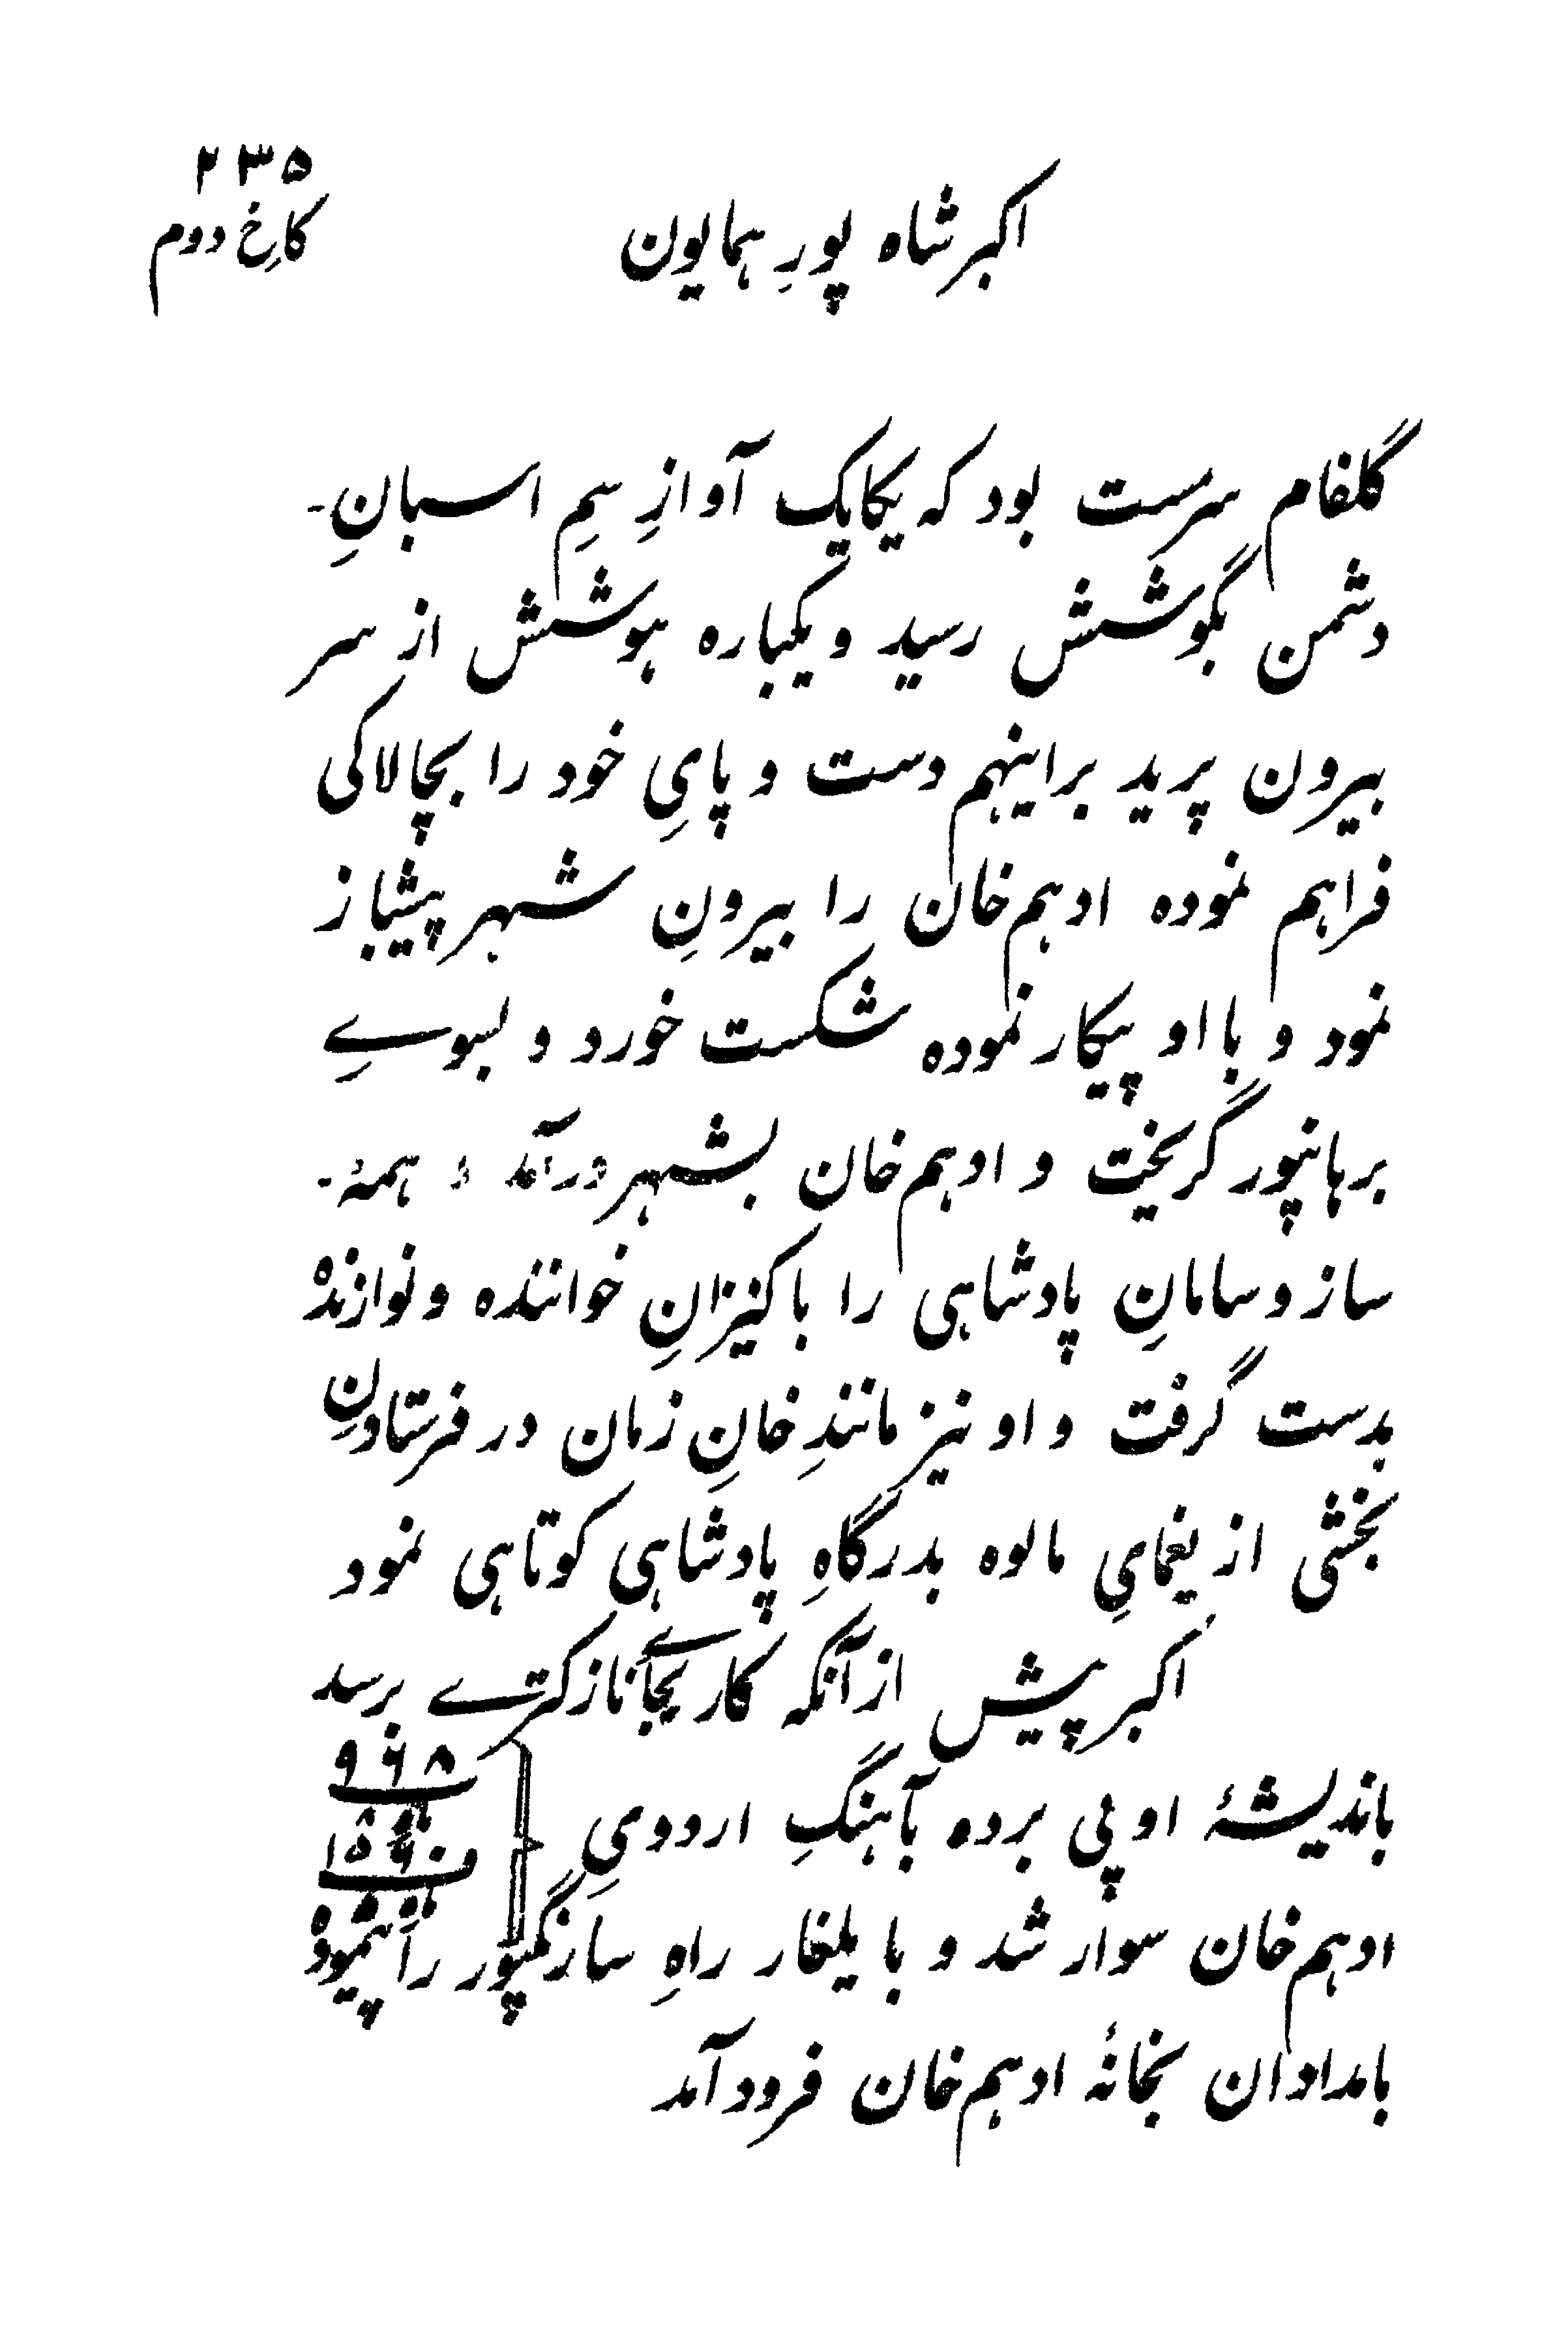 ۲۳۵
اکبر شاه پورِ همایون
کاخِ دوم
گلفام سرمست بود که یکایک آوازِ سمِ اسبانِ-
دشمن بگوشش رسید و یکباره هوشش از سر
بیرون پرید براینهم دست و پایِ خود را بچالاکی
فراهم نموده ادهم خان را بیرونِ شهر پیشباز
نمود و با او پیکار نموده شکست خورد و بسوےِ
برهانپور گریخت و ادهم خان بشهر درآمد و همهٔ-
ساز و سامانِ پادشاهی را با کنیزانِ خواننده و نوازنده
بدست گرفت و او نیز مانندِ خانِ زمان در فرستادنِ
بخشی از یغمایِ مالوه بدرگاهِ پادشاهی کوتاهی نمود
اکبر پیش از آنکه کار بجاے نازکترے برسد
باندیشهٔ او پی برده بآهنگِ اردویِ
۹۶۸
۱۵۶۰
ادهم خان سوار شد و با یلغار راهِ سارنگپور را پیموده
بامدادان بخانهٔ ادهم خان فرود آمد